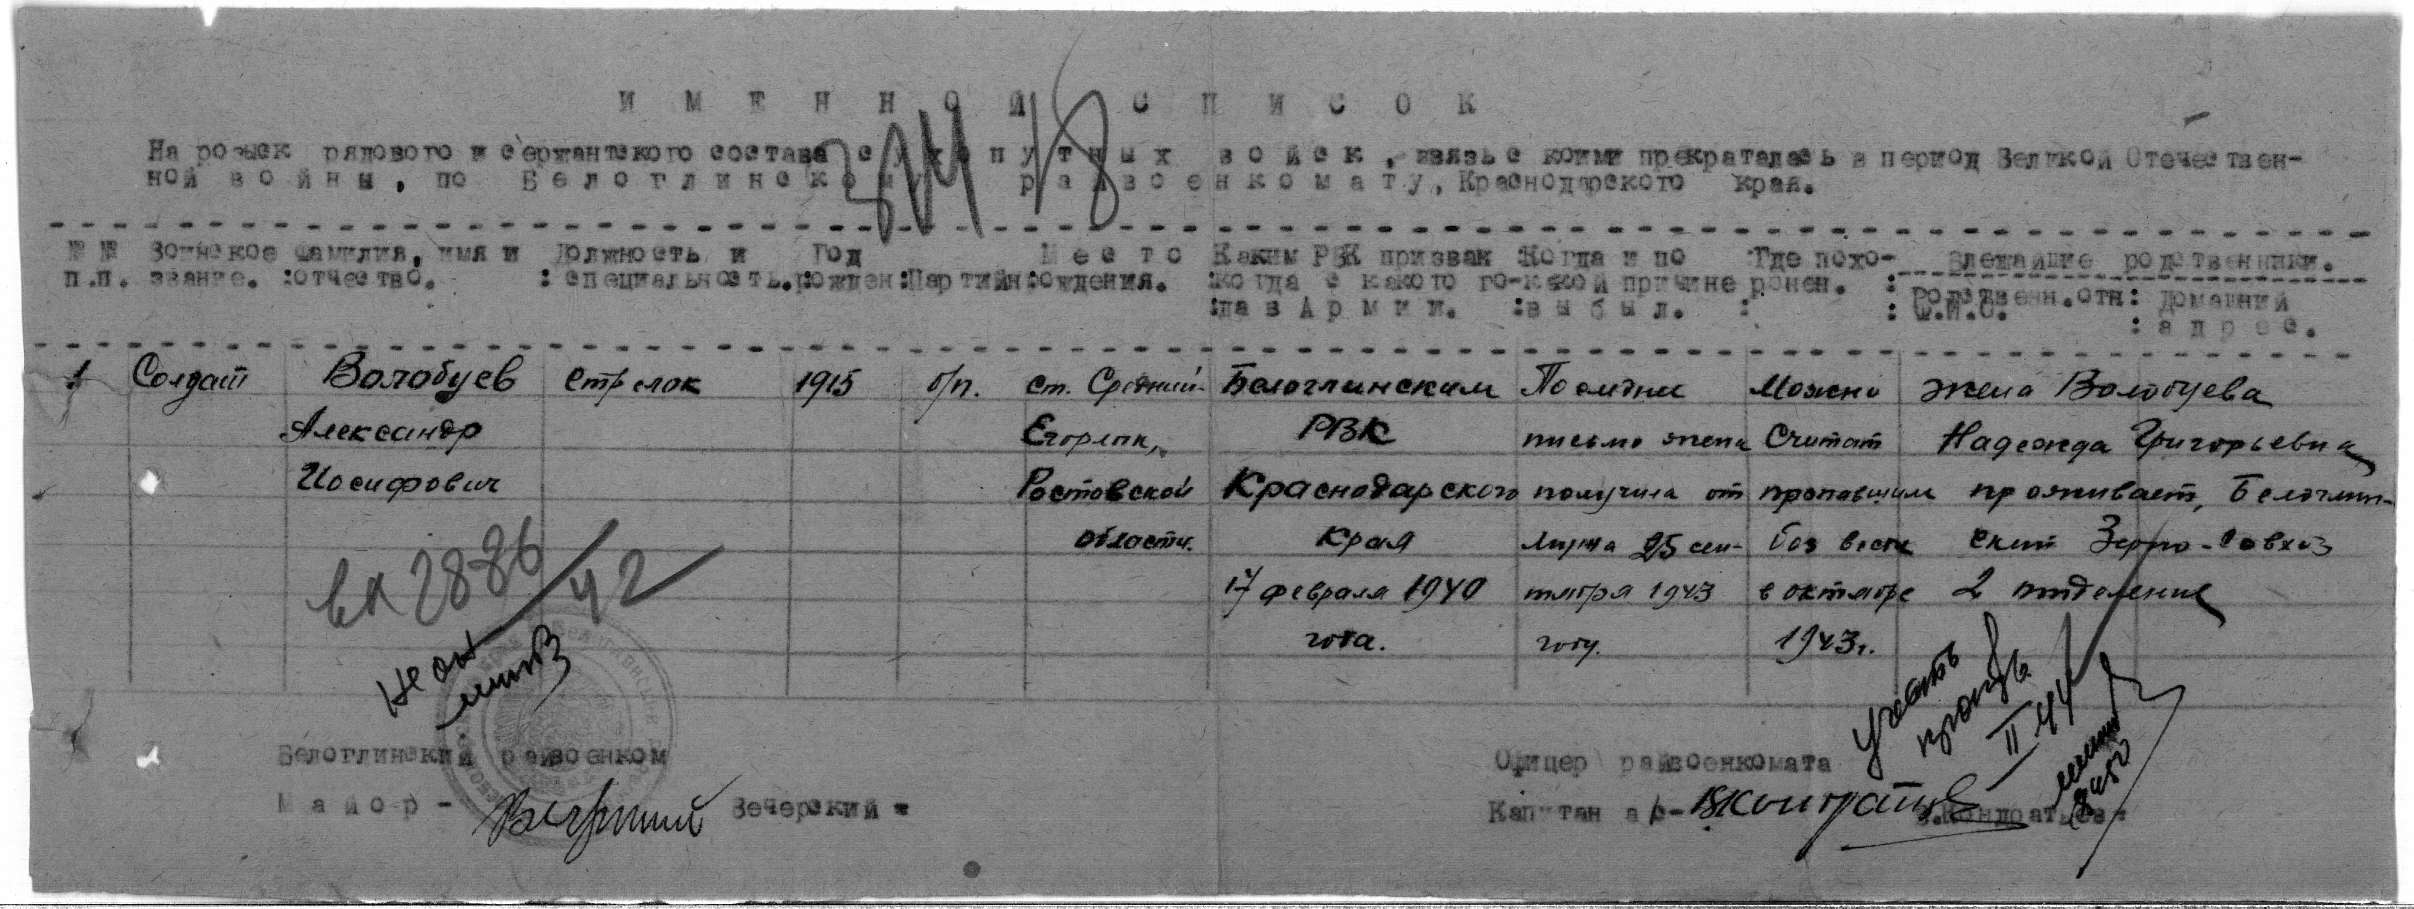 ИМЕННОЙ СПИСОК
На розыск рядового и сержантского состава сухопутных войск, связь с коими прекратилась в период Великой Отечествен-
ной войны, по Белоглинскому райвоенкомату, Краснодарского края.
№№ Воинское Фамилия, имя и Должность и Год Место Каким РВК призван Когда и по Где похо- Ближайшие родственники.
п.п. звание. :отчество. :специальность. рожден: Партийн: рождения. :когда с какого го- какой причине ронен. : Родственн.отн: Домашний
:да в Армии. :выбыл. : : Ф.И.О. : адрес.
1 Солдат Волобуев стрелок 1915 б/п. ст. Средний- Белоглинским Последни Можно жена Волобуева
Александр Егорлык, РВК письмо жена Считат Надежда Григорьевна
Иосифович Ростовской Краснодарского получила от пропавшим проживает, Белоглин-
области. Края мужа 25 сен- без вести ский Зерно-совхоз
17 февраля 1940 тября 1943 в октябре 2 отделение
года. году. 1943г.
вх 2886/42
Учесть
II 44
Белоглинский райвоенком Офицер райвоенкомата
Майор - Вечерский Капитан а/с- Кондратьев